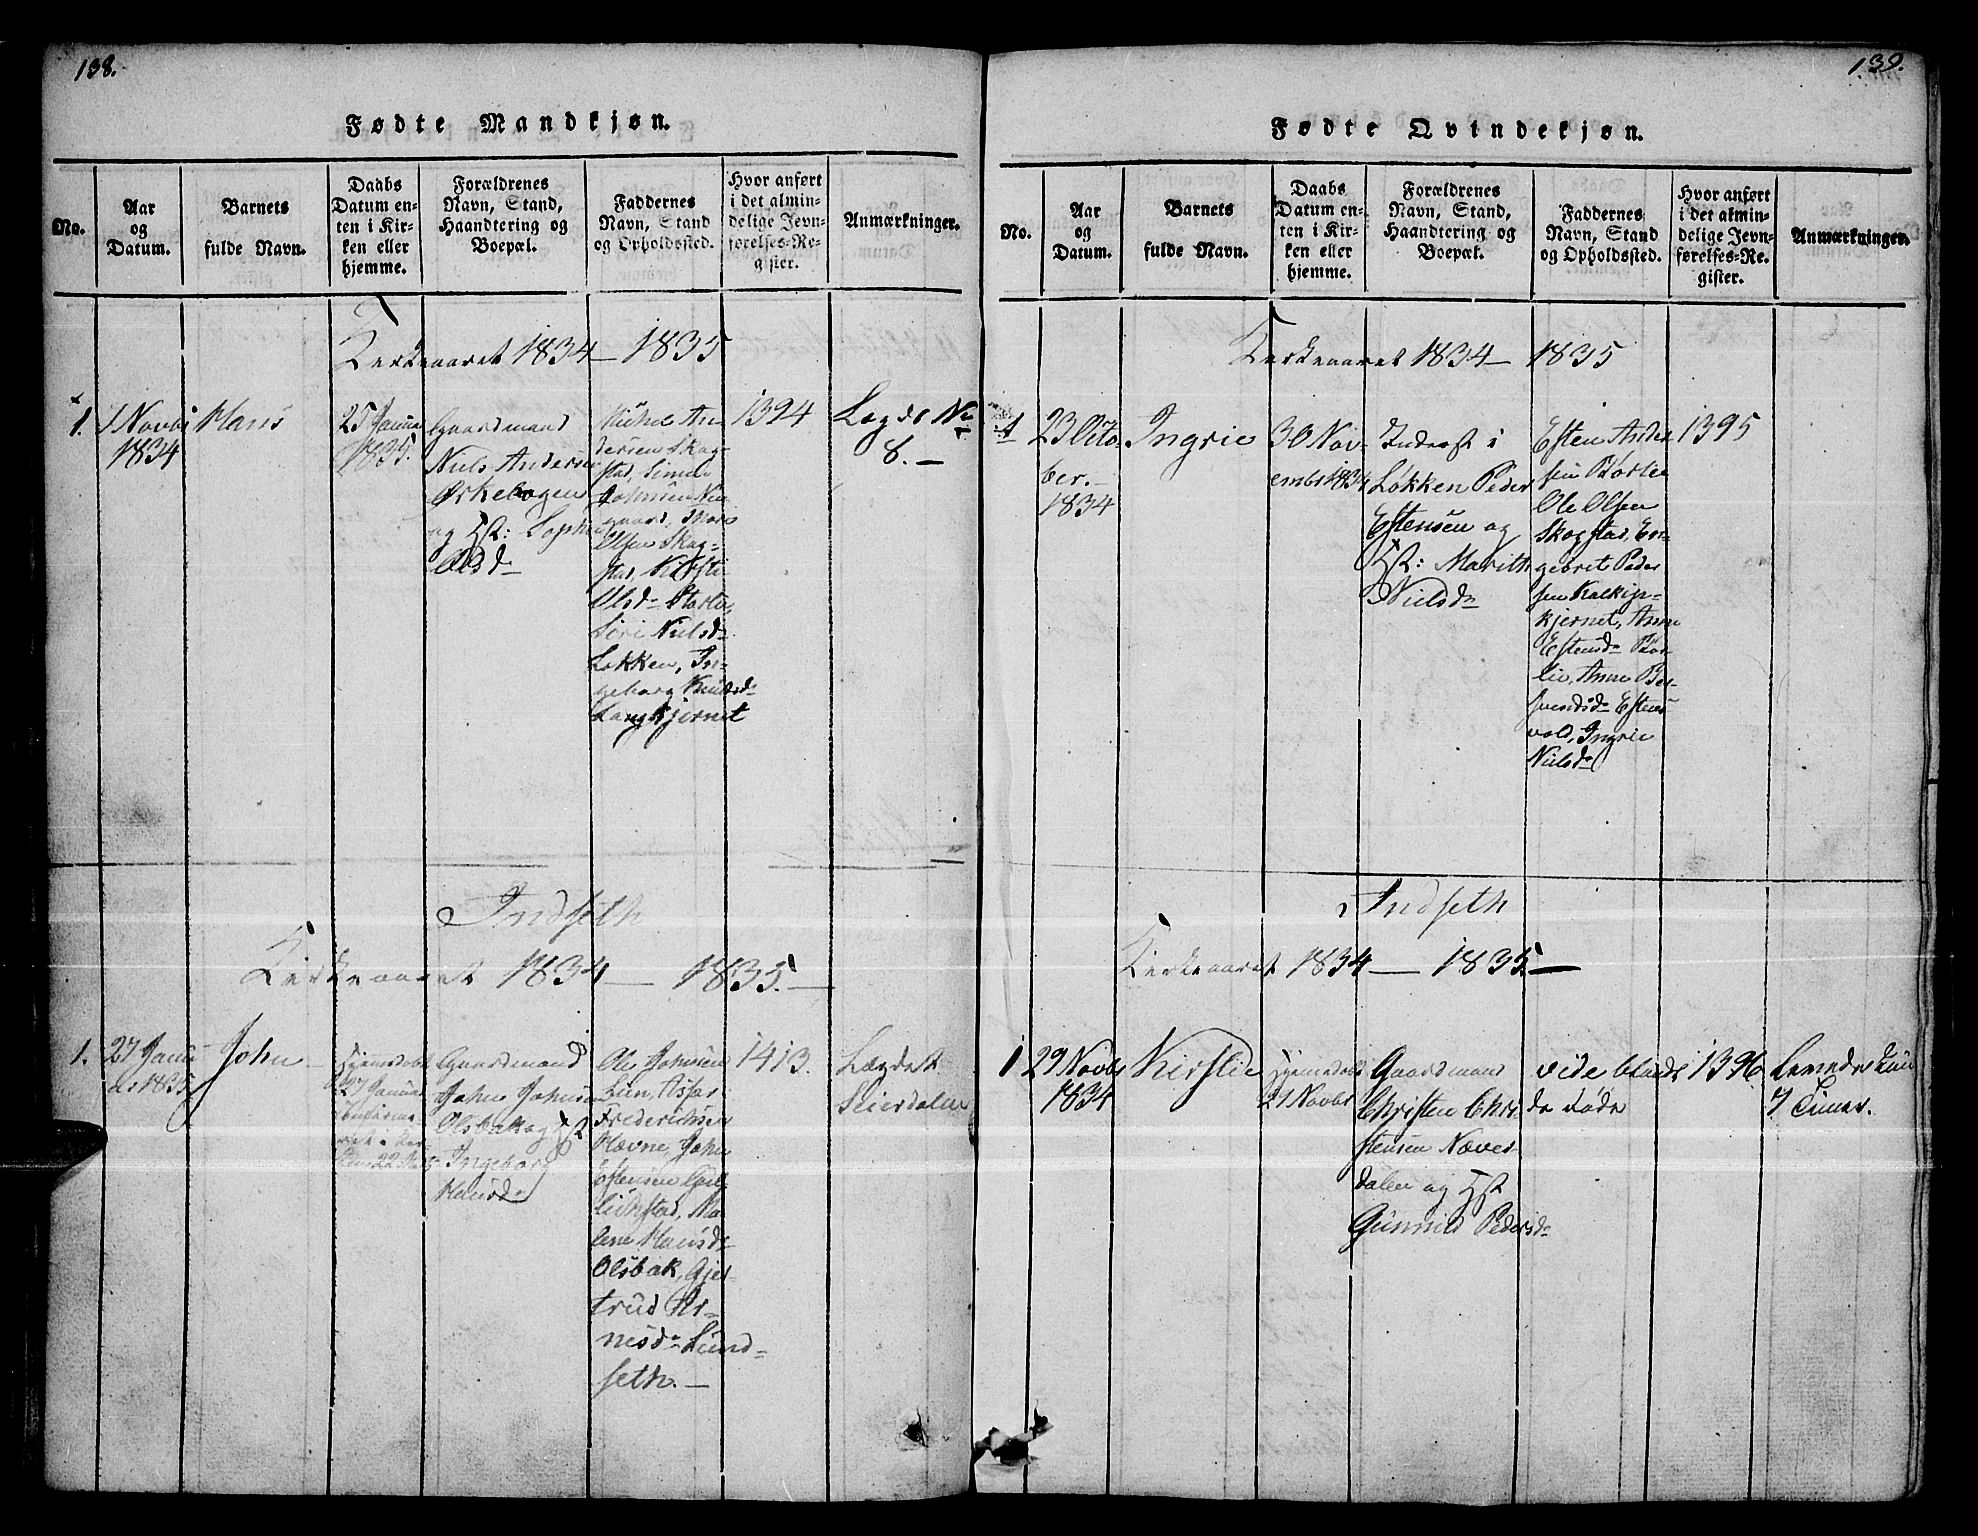 138.
Fødte Mandkjøn.
No.
Aar
og
Datum.
Barnets
fulde Navn.
Daabs
Datum en-
ten i Kir-
ken eller
hjemme.
Forældrenes
Navn, Stand,
Haandtering og
Boepæl.
Faddernes
Navn, Stand
og Opholdssted.
Hvor anført
i det almin-
delige Jevn-
førelses-Re-
gister.
Anmærkninger.
Kirkeaaret 1834 — 1835
1.
Novbr
1834
Hans
25 Janua
1835.
Gaardmand
Niels Andersen
Ørkehogen
og Hst: Sophi
Olsdr
Michel An-
dersen Skog-
stad, Simen
Johnsen Nu-
gaard,
Olsen Skog-
stad, Kirsti
Olsdr
Siri Nielsdr
Løkken, In-
geborg Knudsdr
Langkjernet
1394
Lægds No
8. —
Indseth
Kirkeaaret 1834 — 1835. —
1.
27 Janu
ar 1835
John
Hjemdøbt
27 Januar
confirme-
ret i Kir-
ken 22 Marts
Gaardmand
John Johnsen
Olsbak og Hst
Ingeborg
Hansdr
Ole Johnsen
Lien,
Frederichsen
Havne, John
Estensen
Ma
lene Hansdr
Olsbak, Gjer-
trud Ar-
nesdr Lund-
seth. —
1413.
Lægdet
139.
Fødte Qvindekjøn.
No.
Aar
og
Datum.
Barnets
fulde Navn.
Daabs
Datum en-
ten i Kir-
ken eller
hjemme.
Forældrenes
Navn, Stand,
Haandtering og
Boepæl.
Faddernes
Navn, Stand
og Opholdssted.
Hvor anført
i det almin-
delige Jevn-
førelses-Re-
gister.
Anmærkninger.
Kirkeaaret 1834 — 1835
1
23 Octo
ber. —
1834
Ingrie
30 Nov-
embr 1834
Inderst i
Løkken Peder
Estensen og
Hst: Marith
Nielsdr
Esten Ander
sen Børlie
Ole Olsen
Skogstad, En-
gebret Peder
sen Kalkip-
kjernet, Anne
Estensdr Bør-
lie, Anne Be-
Estens
vold, Ingrie
Nielsdr
1395
Indseth
Kirkeaaret 1834 — 1835. —
1
29 Novbr
1834
Kirstie
Hjemdøbt
29 Novbr
Gaardmand
Christen Chri
stensen Næver
dalen og Hst
Gunnild Pedersdr
vide blandt
de døde
1396
7 Timer.